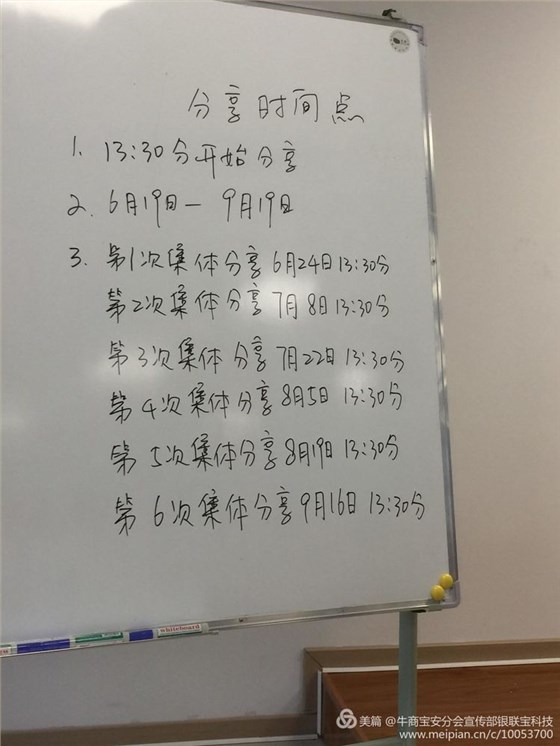 分享时间点
1. 13:30分开始分享
2. 6月19日— 9月19日
3. 第1次集体分享 6月24日 13:30分
第2次集体分享 7月8日 13:30分
第3次集体分享 7月22日 13:30分
第4次集体分享 8月5日 13:30分
第5次集体分享 8月19日 13:30分
第6次集体分享 9月16日 13:30分
whiteboard
美篇 @牛商宝安分会宣传部银联宝科技
www.meipian.cn/c/10053700